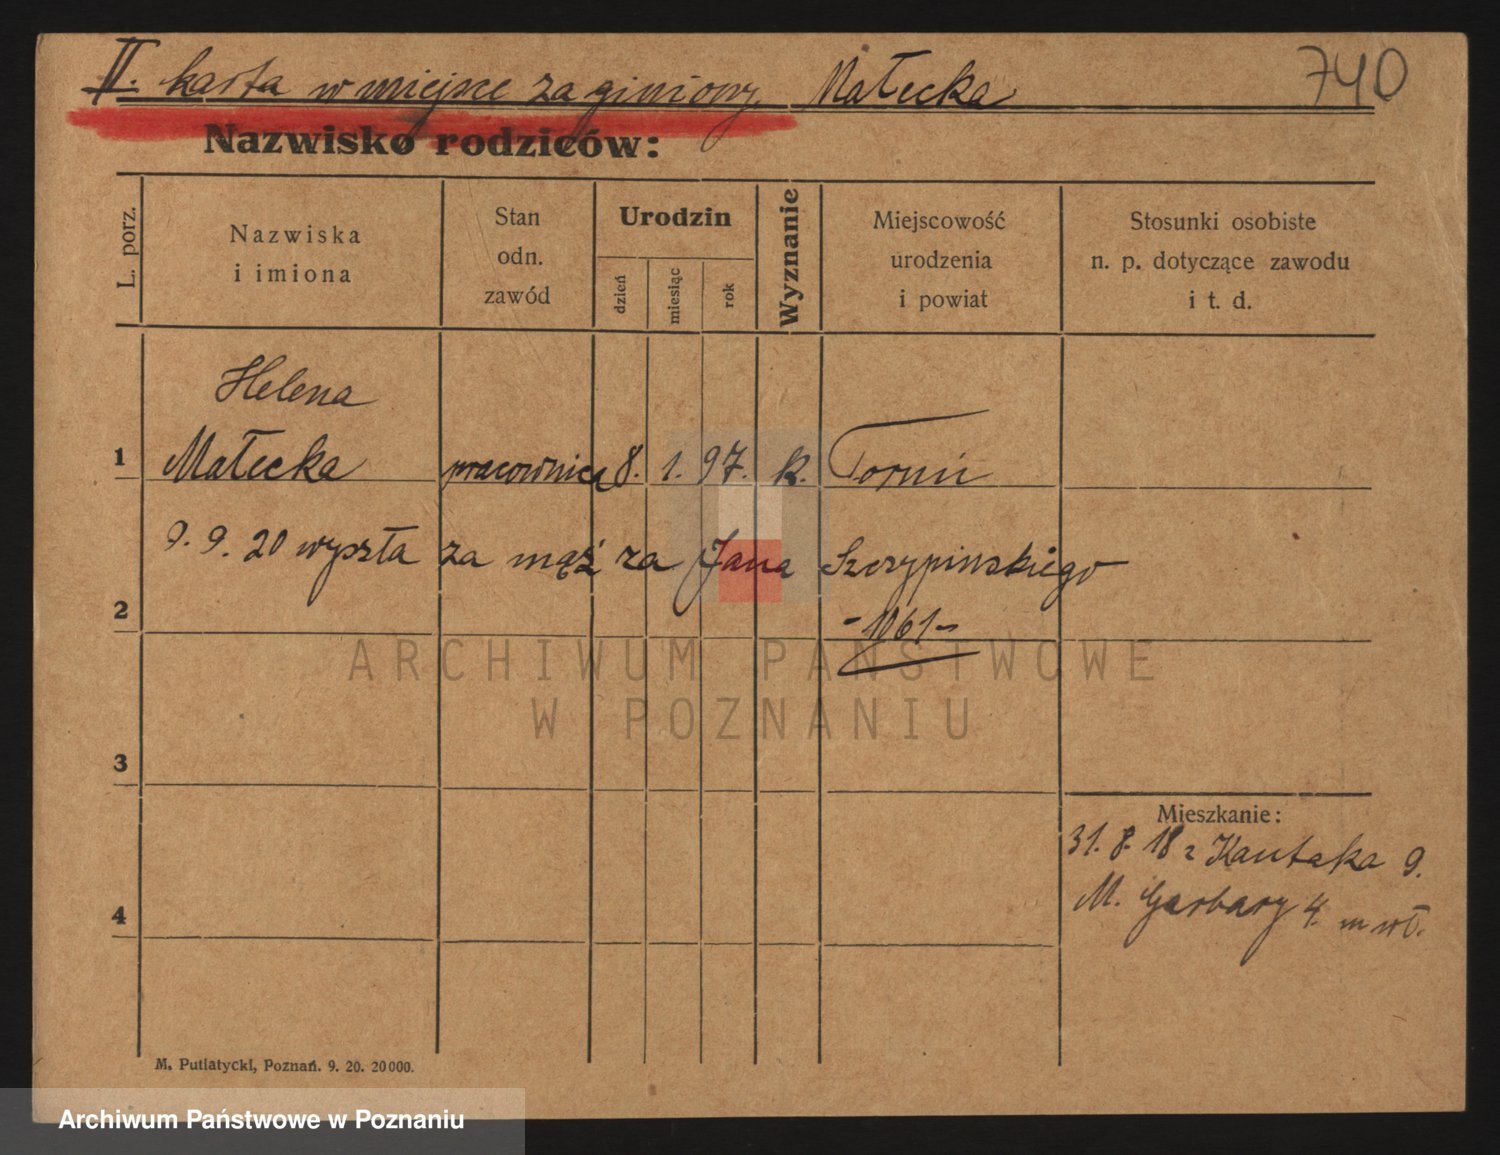 II. karta w miejsce zaginiony Małecka 740
Nazwisko rodziców:
L. porz.
Nazwiska
i imiona
Stan
odn.
zawód
Urodzin
dzień
miesiąc
rok
Wyznanie
Miejscowość
urodzenia
i powiat
Stosunki osobiste
n. p. dotyczące zawodu
i t. d.
Helena
1 Małecka pracownica 8. 1. 97. k. Toruń
9. 9. 20 wyszła za mąż za Jana Szczypinskiego
2 -1061-
ARCHIWUM PAŃSTWOWE
W POZNANIU
3
Mieszkanie:
31. 8. 18 z Kantaka 9.
M. Garbary 4.
4
M. Putiatycki, Poznań. 9. 20. 20000.
Archiwum Państwowe w Poznaniu